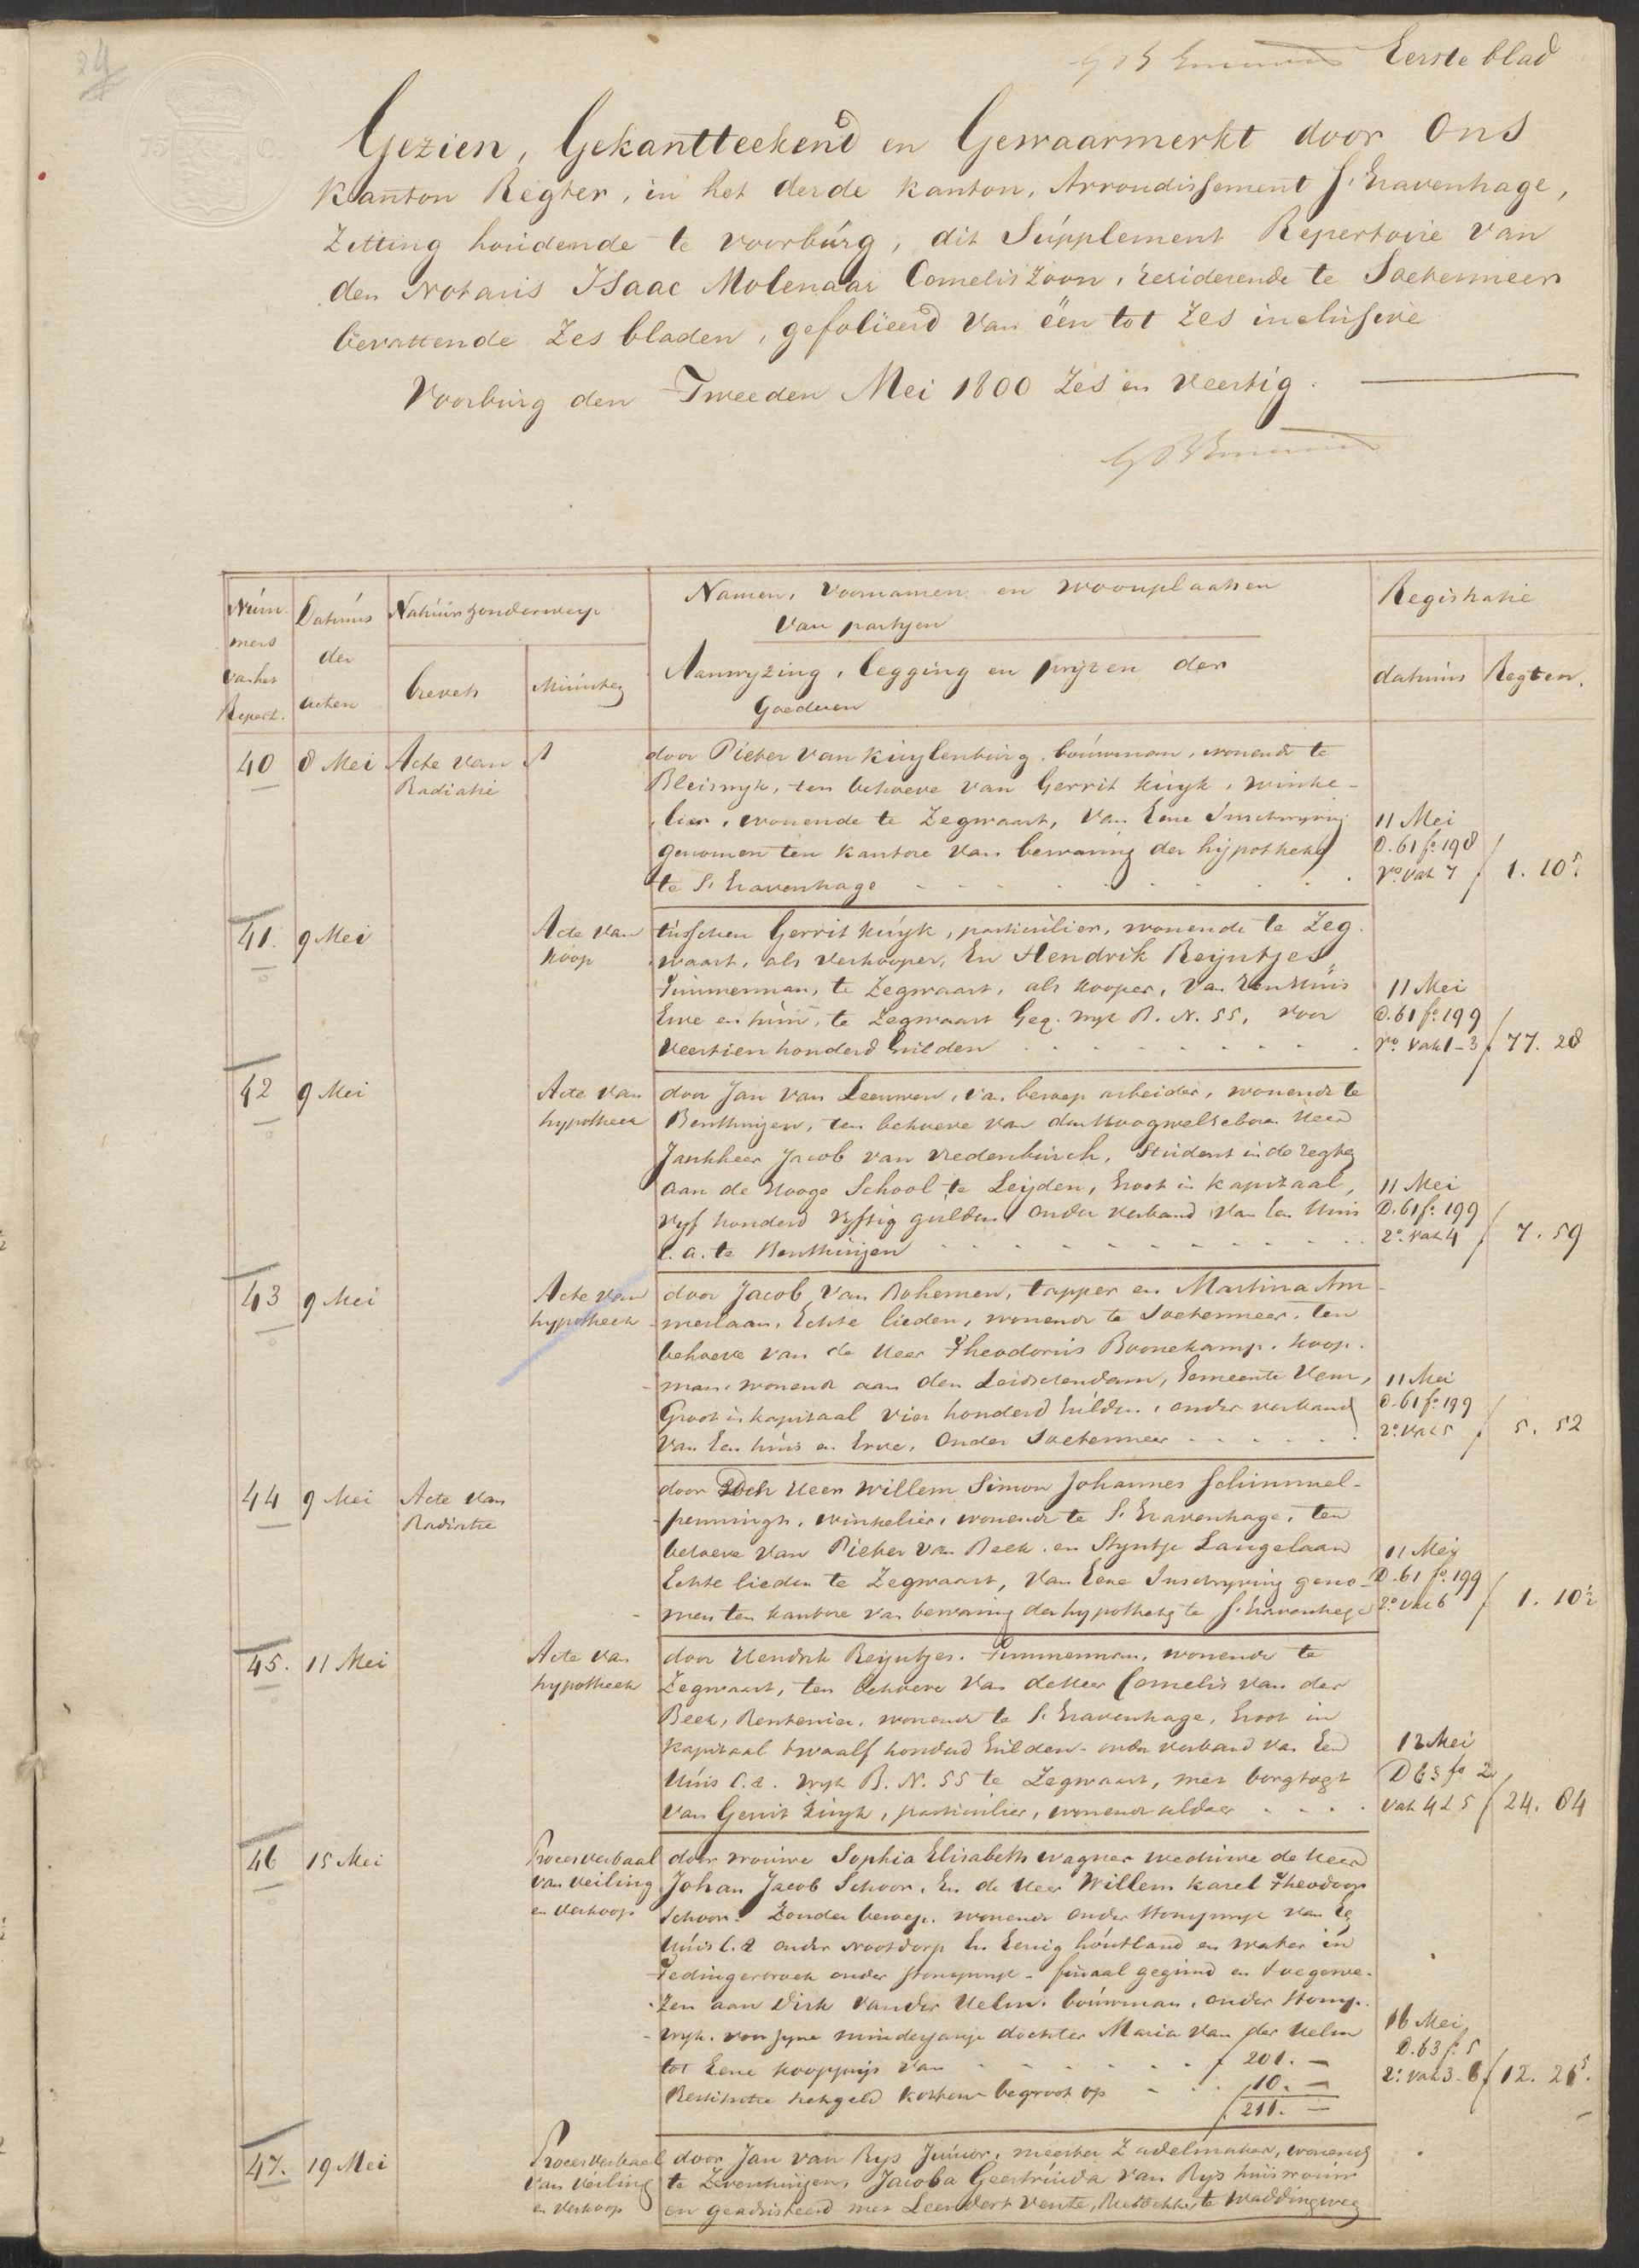 24
Eerste blad
75 C.
Gezien, Gekantteekend en Gewaarmerkt door Ons
Kanton Regter, in het derde kanton, Arrondissement S. Gravenhage,
Zitting houdende te Voorburg, dit Supplement Repertoire van
den Notaris Isaac Molenaar Cornelis Zoon, resideerende te Soetermeer
bevattende Zes bladen, gefolieerd van één tot Zes inclusive
Voorburg den Tweeden Mei 1800 Zes en Veertig.
Num-
mers
van het
Repert.
Datums
der
acten
Natuur & onderwerp
brevets
Minuten
Namen, Voornamen en Woonplaatsen
van partyen
Aanwyzing, legging en pryzen der
Goederen
Registratie
datums
Regten.
40 8 Mei Acte van
Radiatie
door Pieter van Kuylenburg, bouwman, wonende te
Bleiswyk, ten behoeve van Gerrit Kuyk, winke-
lier, wonende te Zegwaart, van Eene Inschryving
genomen ten kantore van bewaring der hypotheken
te S. Gravenhage
11 Mei
D. 61 fo. 198
vo. vak 7
1. 10 5
41. 9 Mei Acte van
Koop
tusschen Gerrit Kuyk, particulier, wonende te Zeg-
waart, als verkooper, En Hendrik Reyntjes,
Timmerman, te Zegwaart, als kooper, van Een Huis
Erve en tuin, te Zegwaart Geq. wyk B. N. 55, voor
Veertien honderd Gulden
11 Mei
D. 61 fo. 199
ro. vak 1-3
77. 28
42 9 Mei Acte van
hypotheek
door Jan van Leeuwen, van beroep arbeider, wonende te
Benthuizen, ten behoeve van den Hoogwelgeboren Heer
Jonkheer Jacob van Vredenburch, Student in de regten
aan de Hooge School te Leyden, Groot in kapitaal,
vyf honderd vyftig gulden, onder verband van Een Huis
c.a. te Benthuizen
11 Mei
D. 61 fo. 199
vo. vak 4
7. 59
43 9 Mei Acte van
hypotheek
door Jacob van Bohemen, tapper en Martina Am-
merlaan, Echte lieden, wonende te Soetermeer, ten
behoeve van de Heer Theodorus Boonekamp, koop-
man, wonende aan den Leidschendam, Gemeente Veur,
Groot in kapitaal vier honderd Gulden, onder verband
van Een huis en Erve, onder Soetermeer
11 Mei
D. 61 fo. 199
vo. vak 5
5. 52
44 9 Mei Acte van
Radiatie
door den Heer Willem Simon Johannes Schimmel-
penningh, winkelier, wonende te S. Gravenhage, ten
behoeve van Pieter van Beek en Styntje Langelaan
Echte lieden te Zegwaart, van Eene Inschryving geno-
men ten kantore van bewaring der hypotheken te S. Gravenhage
11 Mei
D. 61 fo. 199
vo. vak 6
1. 10½
45. 11 Mei Acte van
hypotheek
door Hendrik Reyntjes, Timmerman, wonende te
Zegwaart, ten behoeve van de Heer Cornelis van der
Beek, Rentenier, wonende te S. Gravenhage, Groot in
kapitaal twaalf honderd Gulden, onder verband van Een
Huis c.a. wyk B. N. 55 te Zegwaart, met borgtogt
van Gerrit Kuyk, particulier, wonende aldaar
12 Mei
D 63 fo 2
vak 4 & 5
24. 84
46 15 Mei Procesverbaal
van veiling
en verkoop
door vrouwe Sophia Elisabeth Wagner weduwe de Heer
Johan Jacob Schoor, En de Heer Willem Karel Theodoor
Schoor, Zonder beroep, wonende onder Stompwyk van Een
Huis c.a. onder Nootdorp En Eenig houtland en water in
Tedingerbroek onder Stompwyk, finaal gegund en toegewe-
zen aan Dirk van der Helm, bouwman, onder Stomp-
wyk, voor zyne minderjarige dochter Maria van der Helm
tot Eene koopprys van ƒ 201. —
Restitutie kosten begroot op 10. —
ƒ 211. —
16 Mei
D. 63 fo. 5
vo. vak 3-6
12. 21 5.
47. 19 Mei Procesverbaal
van veiling
en verkoop
door Jan van Rys Junior, meester Zadelmaker, wonende
te Zevenhuizen, Jacoba Geertruida van Rys huisvrouw
en geadsisteerd met Leendert Vente, Rietdekker, te Waddingsveen